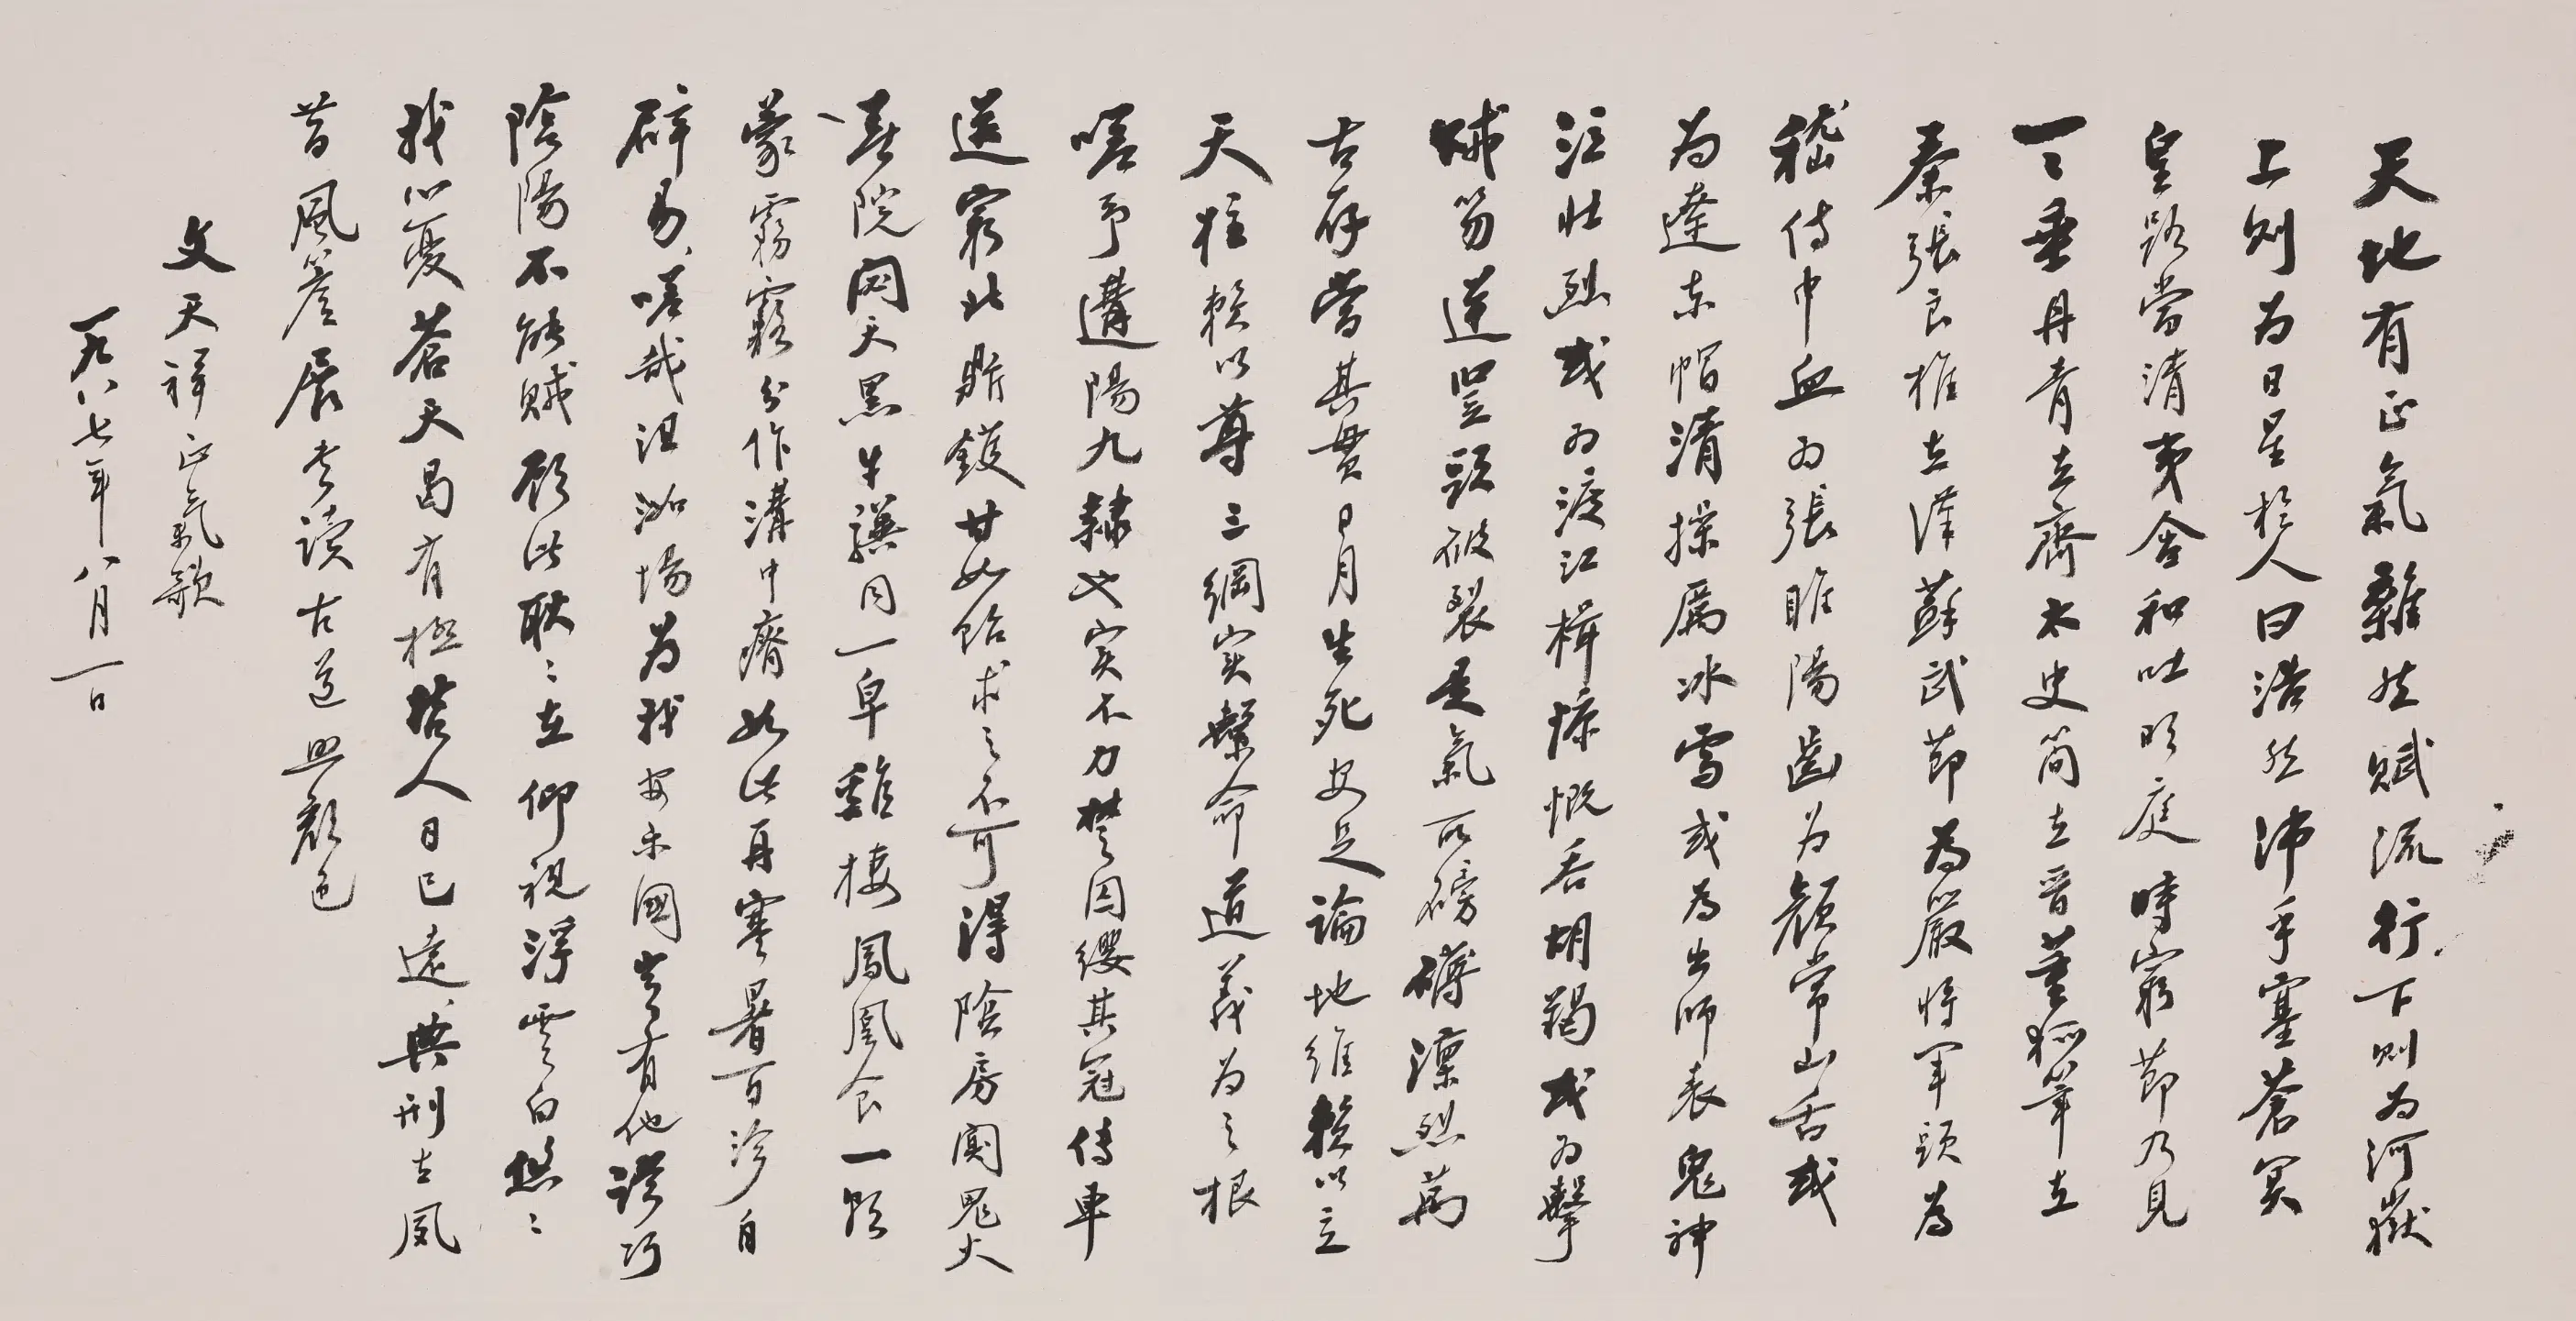 天地有正氣雜然賦流行下則為河嶽
上則為日星於人曰浩然沛乎塞蒼冥
皇路當清夷含和吐明庭時窮節乃見
一一垂丹青在齊太史簡在晉董狐筆在
秦張良椎在漢蘇武節為嚴將軍頭為
嵇侍中血為張睢陽齒為顏常山舌或
為遼東帽清操厲冰雪或為出師表鬼神
泣壯烈或為渡江楫慷慨吞胡羯或為擊
賊笏逆豎頭破裂是氣所磅礴凜烈萬
古存當其貫日月生死安足論地維賴以立
天柱賴以尊三綱实繫命道義為之根
嗟予遘陽九隸也实不力楚囚纓其冠傳車
送窮北鼎鑊甘如飴求之不可得陰房闃鬼火
春院閟天黑牛驥同一皁雞棲鳳凰食一朝
蒙霧露分作溝中瘠如此再寒暑百沴自
辟易嗟哉沮洳場為我安樂國豈有他謬巧
陰陽不能賊顧此耿々在仰視浮雲白悠々
我心憂蒼天曷有極哲人日已遠典刑在夙
昔風簷展書讀古道照顏色
文天祥正氣歌
一九八七年八月一日